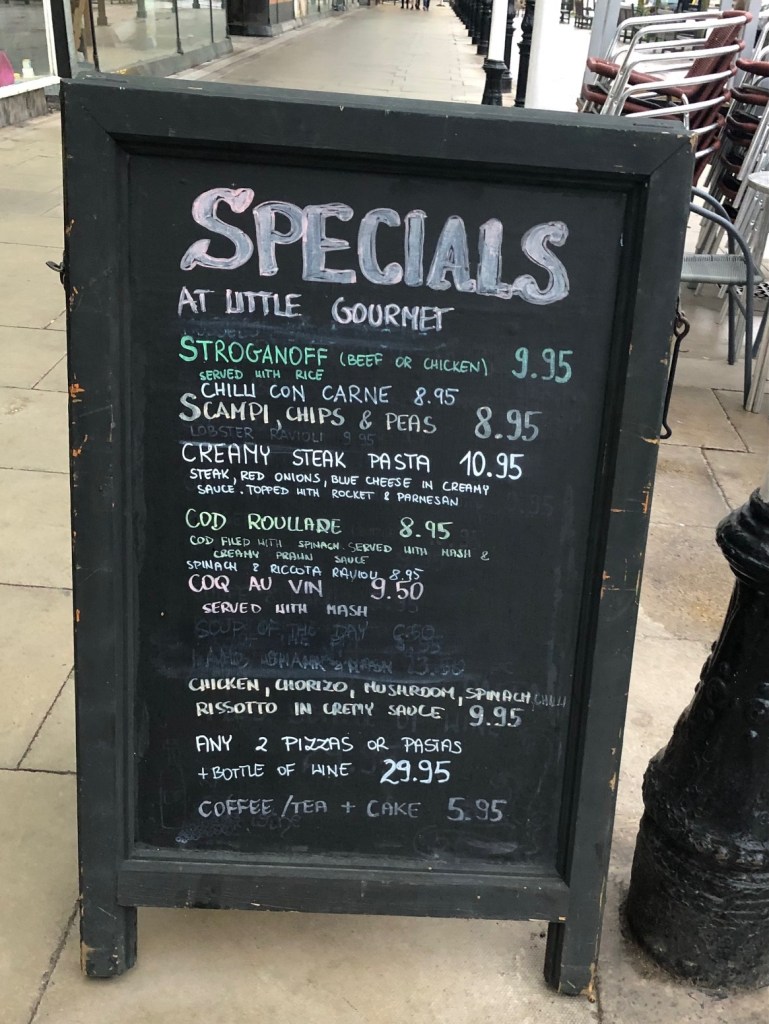 SPECIALS
AT LITTLE GOURMET
STROGANOFF (BEEF OR CHICKEN) 9.95
SERVED WITH RICE
CHILLI CON CARNE 8.95
SCAMPI, CHIPS & PEAS 8.95
LOBSTER RAVIOLI 9.95
CREAMY STEAK PASTA 10.95
STEAK, RED ONIONS, BLUE CHEESE IN CREAMY
SAUCE. TOPPED WITH ROCKET & PARMESAN
COD ROULLADE 8.95
COD FILED WITH SPINACH. SERVED WITH MASH &
CREAMY PRAWN SAUCE
SPINACH & RICCOTA RAVIOLI 8.95
COQ AU VIN 9.50
SERVED WITH MASH
SOUP OF THE DAY
LAMB SHANK
CHICKEN, CHORIZO, MUSHROOM, SPINACH, CHILLI
RISSOTTO IN CREMY SAUCE 9.95
ANY 2 PIZZAS OR PASTAS
+ BOTTLE OF WINE 29.95
COFFEE/TEA + CAKE 5.95